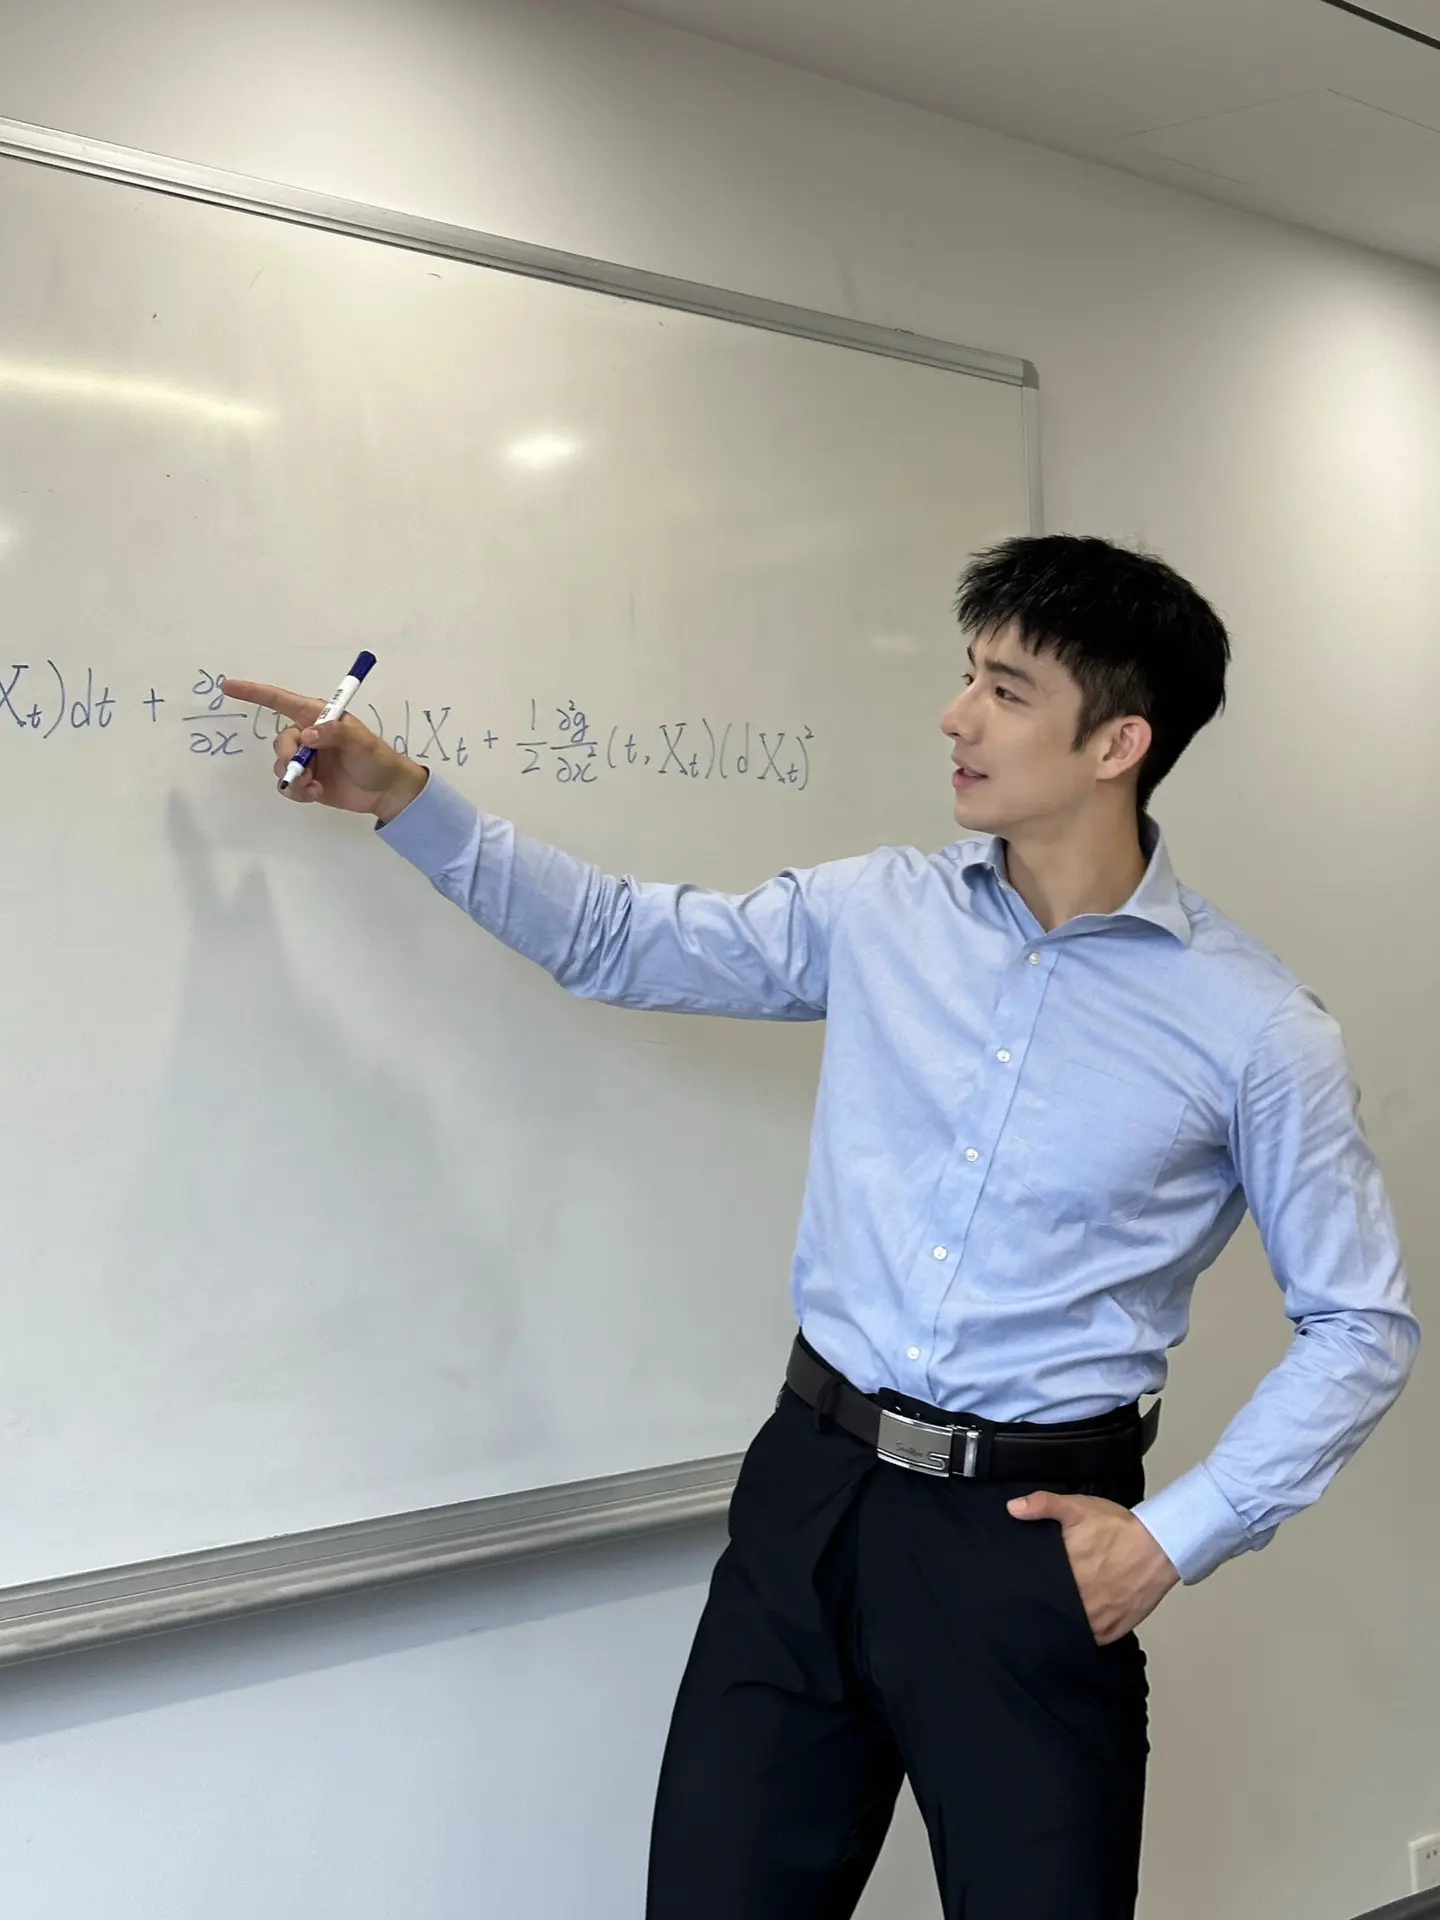 X_t)dt + ∂g/∂x (t dX_t + 1/2 ∂²g/∂x² (t, X_t)(dX_t)²